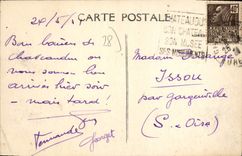 CARTE POSTALE
24/5/31
28
Bon baisers de
Chateaudun ou
nous sommes bien
arrivés hier soir
- mais tard!
Fernande
CHATEAUDUN
SON CHATEAU
MUSÉE
SES
Madame
ISSOU
par Gargenville
(S.-et-Oise)